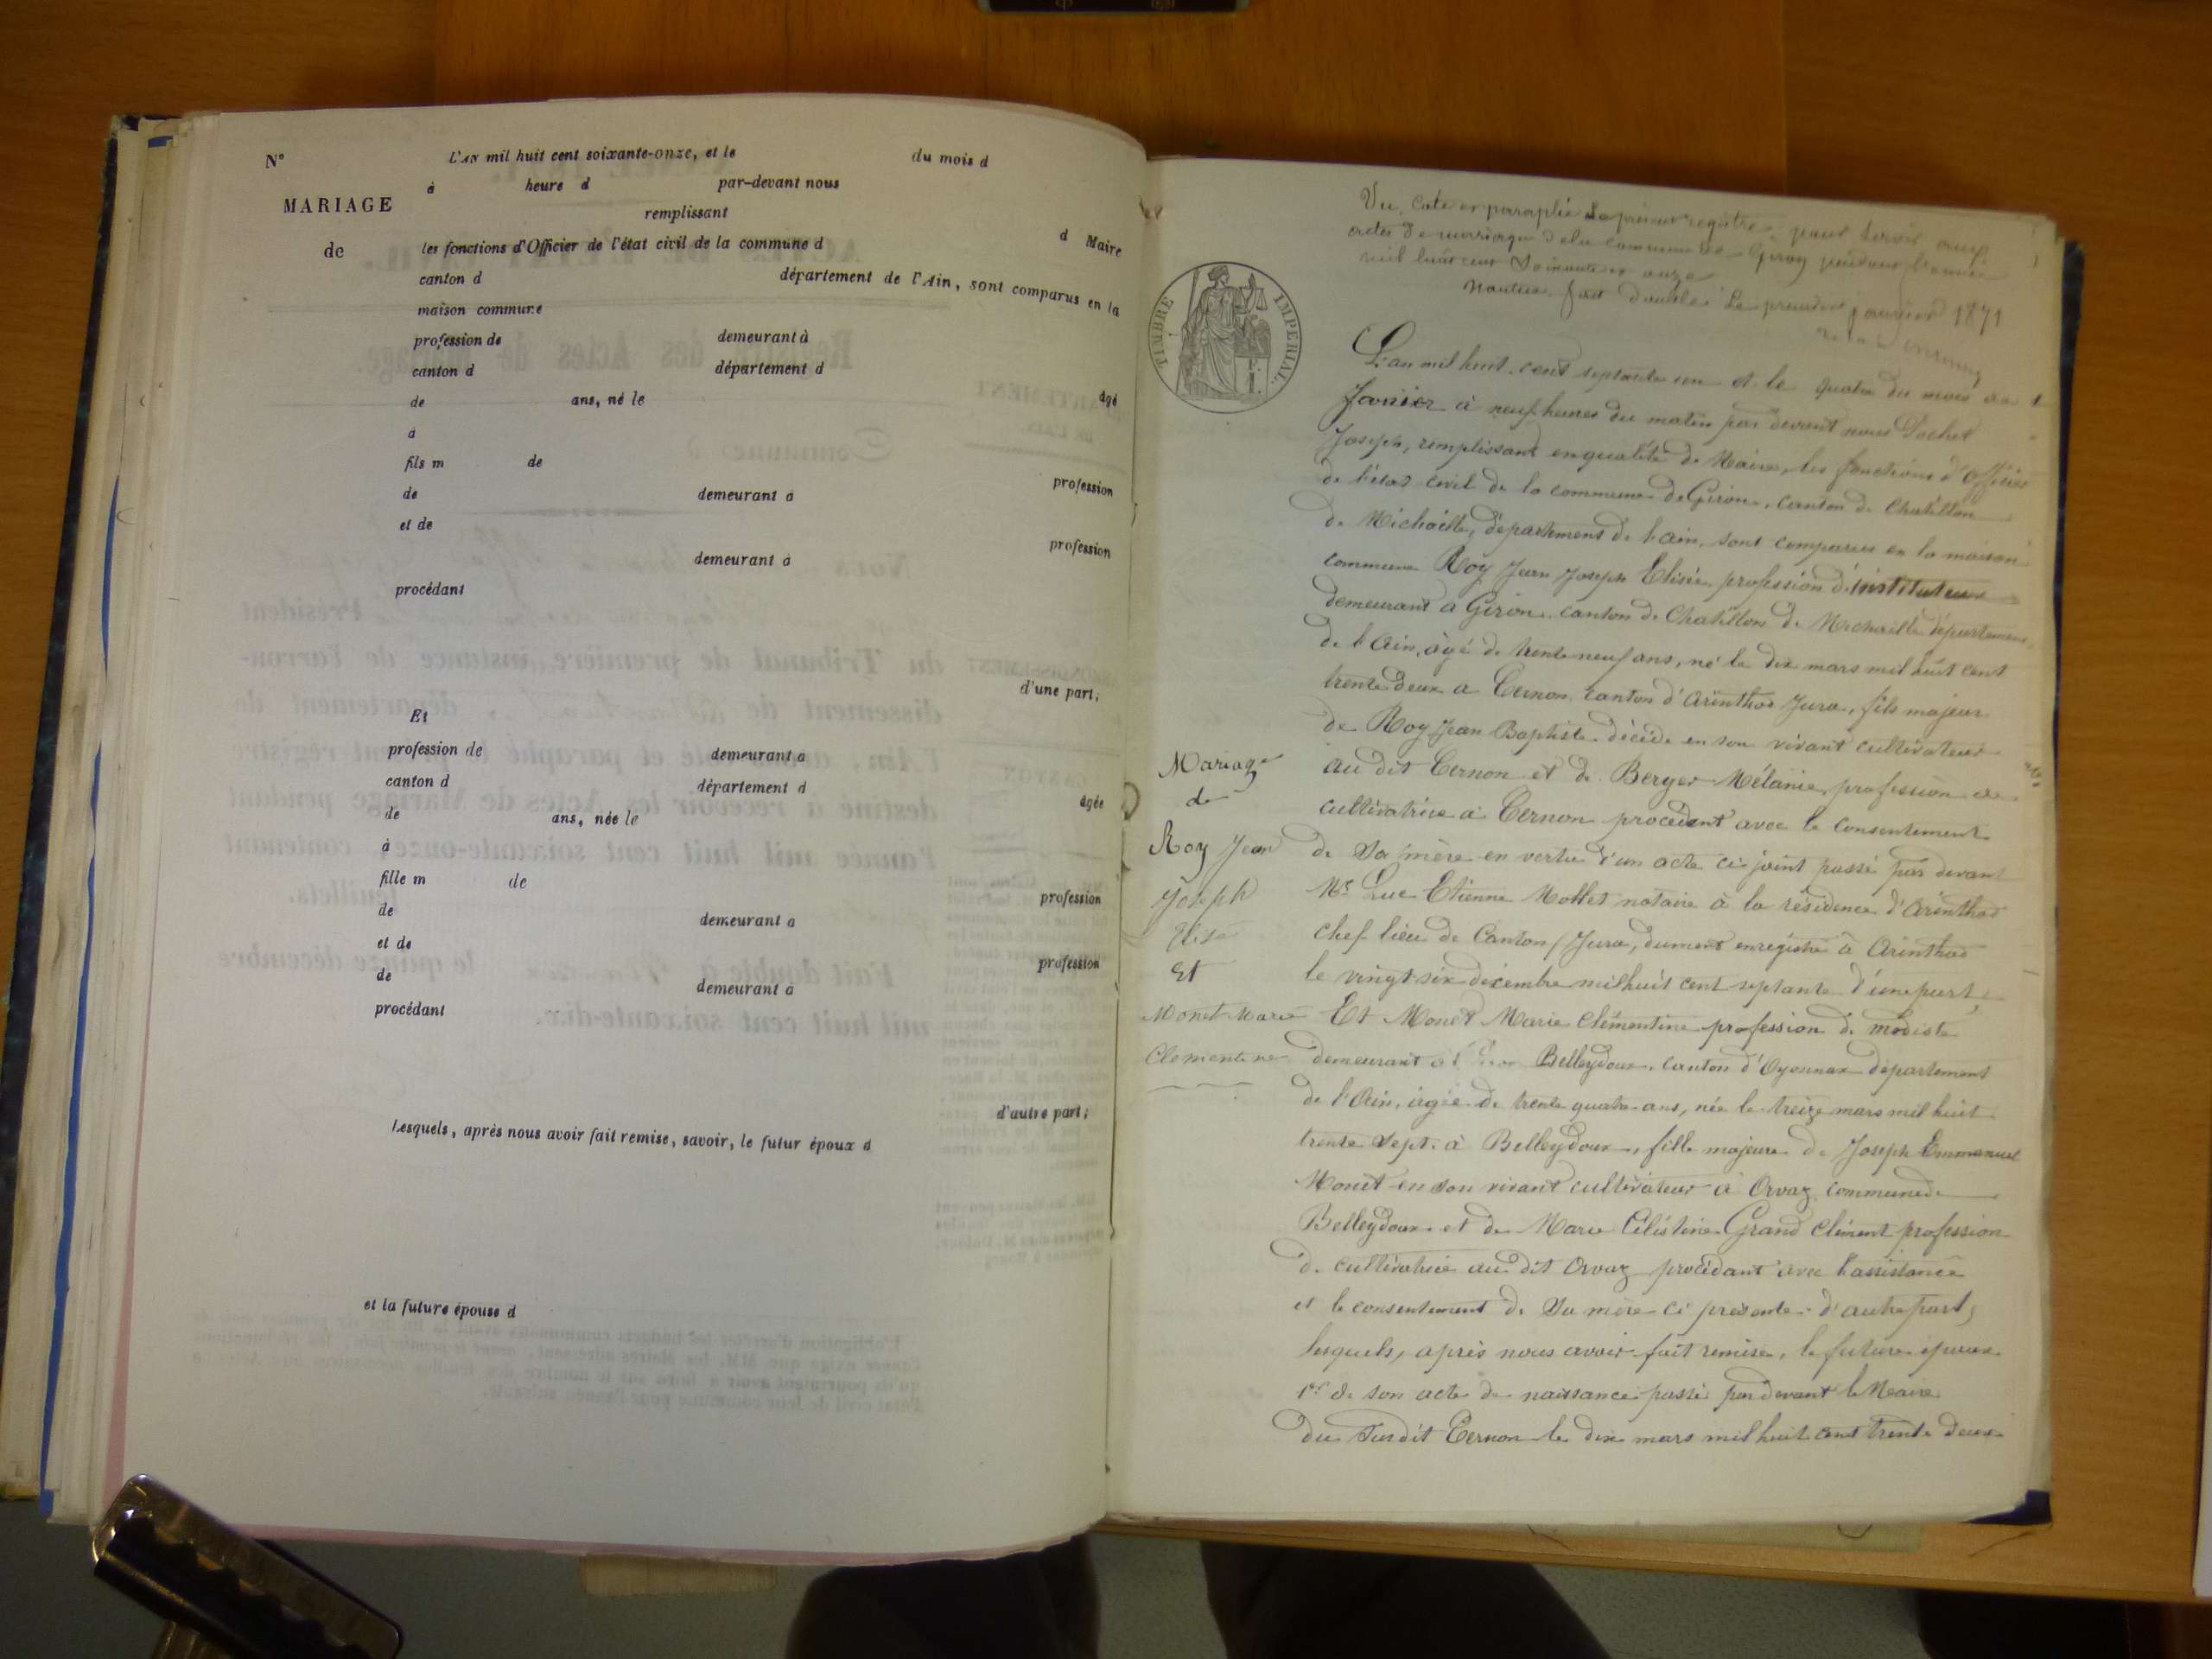 N°
L'AN mil huit cent soixante-onze, et le du mois d
à heure d par-devant nous
MARIAGE
remplissant d Maire
de
les fonctions d'Officier de l'état civil de la commune d
canton d département de l'Ain, sont comparus en la
maison commune
profession de demeurant à
canton d département d âgé
de ans, né le
à
fils m de profession
de demeurant à
et de profession
demeurant à
procédant
d'une part;
Et
profession de demeurant à
canton d département d âgée
de ans, née le
à
fille m de profession
de demeurant à
et de profession
de demeurant à
procédant
d'autre part;
Lesquels, après nous avoir fait remise, savoir, le futur époux d
et la future épouse d
Vu, Coté et paraphé le présent registre pour servir aux
actes de mariage de la commune de pendant l'année
mil huit cent soixante et onze
Nantua fait double le premier janvier 1871
TIMBRE IMPERIAL.
L'an mil huit cent septante un et le quatre du mois de
Janvier à neuf heures du matin par devant nous Pochet
Joseph, remplissant en qualité de Maire, les fonctions d'Officier
de l'état civil de la commune de Giron, canton de Chatillon
de Michaille, département de l'ain, sont comparus en la maison
commune Roy Jean Joseph Elisée profession d'instituteur
demeurant à Giron canton de Chatillon de Michaille département
de l'Ain, âgé de trente neuf ans, né le dix mars mil huit cent
trente deux à Cernon canton d'Arinthod Jura, fils majeur
de Roy Jean Baptiste décédé en son vivant cultivateur
au dit Cernon et de Berger Mélanie, profession de
cultivatrice à Cernon procédant avec le consentement
de sa mère en vertu d'un acte ci joint passé par devant
Me Luc Etienne Mottet notaire à la résidence d'Arinthod
chef lieu de Canton (Jura, dument enregistré à Arinthod
le vingt six décembre mil huit cent septante d'une part,
Mariage
de
Roy Jean
Joseph
Elisé
Et
Monet Marie
Clementine
Et Monet Marie Clémentine profession de modiste
demeurant à Belleydoux, canton d'Oyonnax département
de l'Ain, âgée de trente quatre ans, née le treize mars mil huit
trente sept à Belleydoux, fille majeure de Joseph Emmanuel
Monet en son vivant cultivateur à Orvaz commune de
Belleydoux et de Marie Célestine Grand Clément profession
de cultivatrice au dit Orvaz procédant avec l'assistance
et le consentement de sa mère ci présente d'autre part,
lesquels, après nous avoir fait remise, le future époux
1er de son acte de naissance passé par devant le Maire
du susdit Cernon le dix mars mil huit cent trente deux